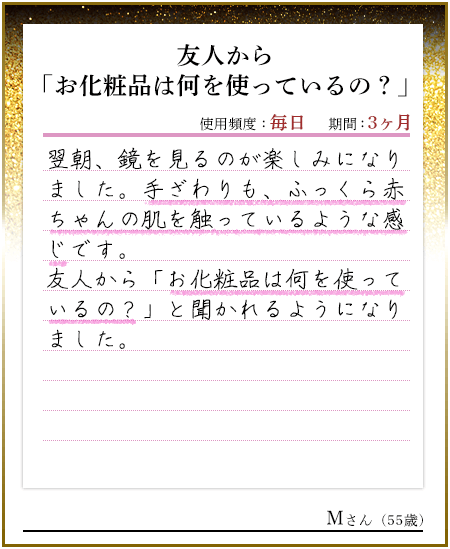 友人から
「お化粧品は何を使っているの？」
使用頻度：毎日　期間：3ヶ月
翌朝、鏡を見るのが楽しみになり
ました。手ざわりも、ふっくら赤
ちゃんの肌を触っているような感
じです。
友人から「お化粧品は何を使って
いるの？」と聞かれるようになり
ました。
Mさん（55歳）